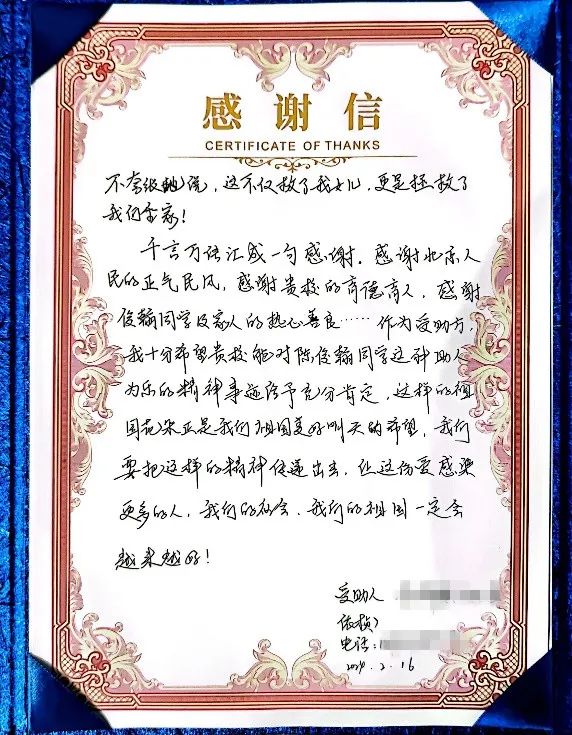 感谢信
CERTIFICATE OF THANKS
不夸张地说，这不仅救了我女儿，更是拯救了
我们全家！
千言万语汇成一句感谢。感谢北京人
民的正气民风，感谢贵校的育德育人，感谢
俊翰同学及家人的热心善良……作为受助方，
我十分希望贵校能对陈俊翰同学这种助人
为乐的精神事迹给予充分肯定，这样的祖
国花朵正是我们祖国美好明天的希望，我们
要把这样的精神传递出去，让这份爱感染
更多的人，我们的社会、我们的祖国一定会
越来越好！
受助人
电话：
2.16